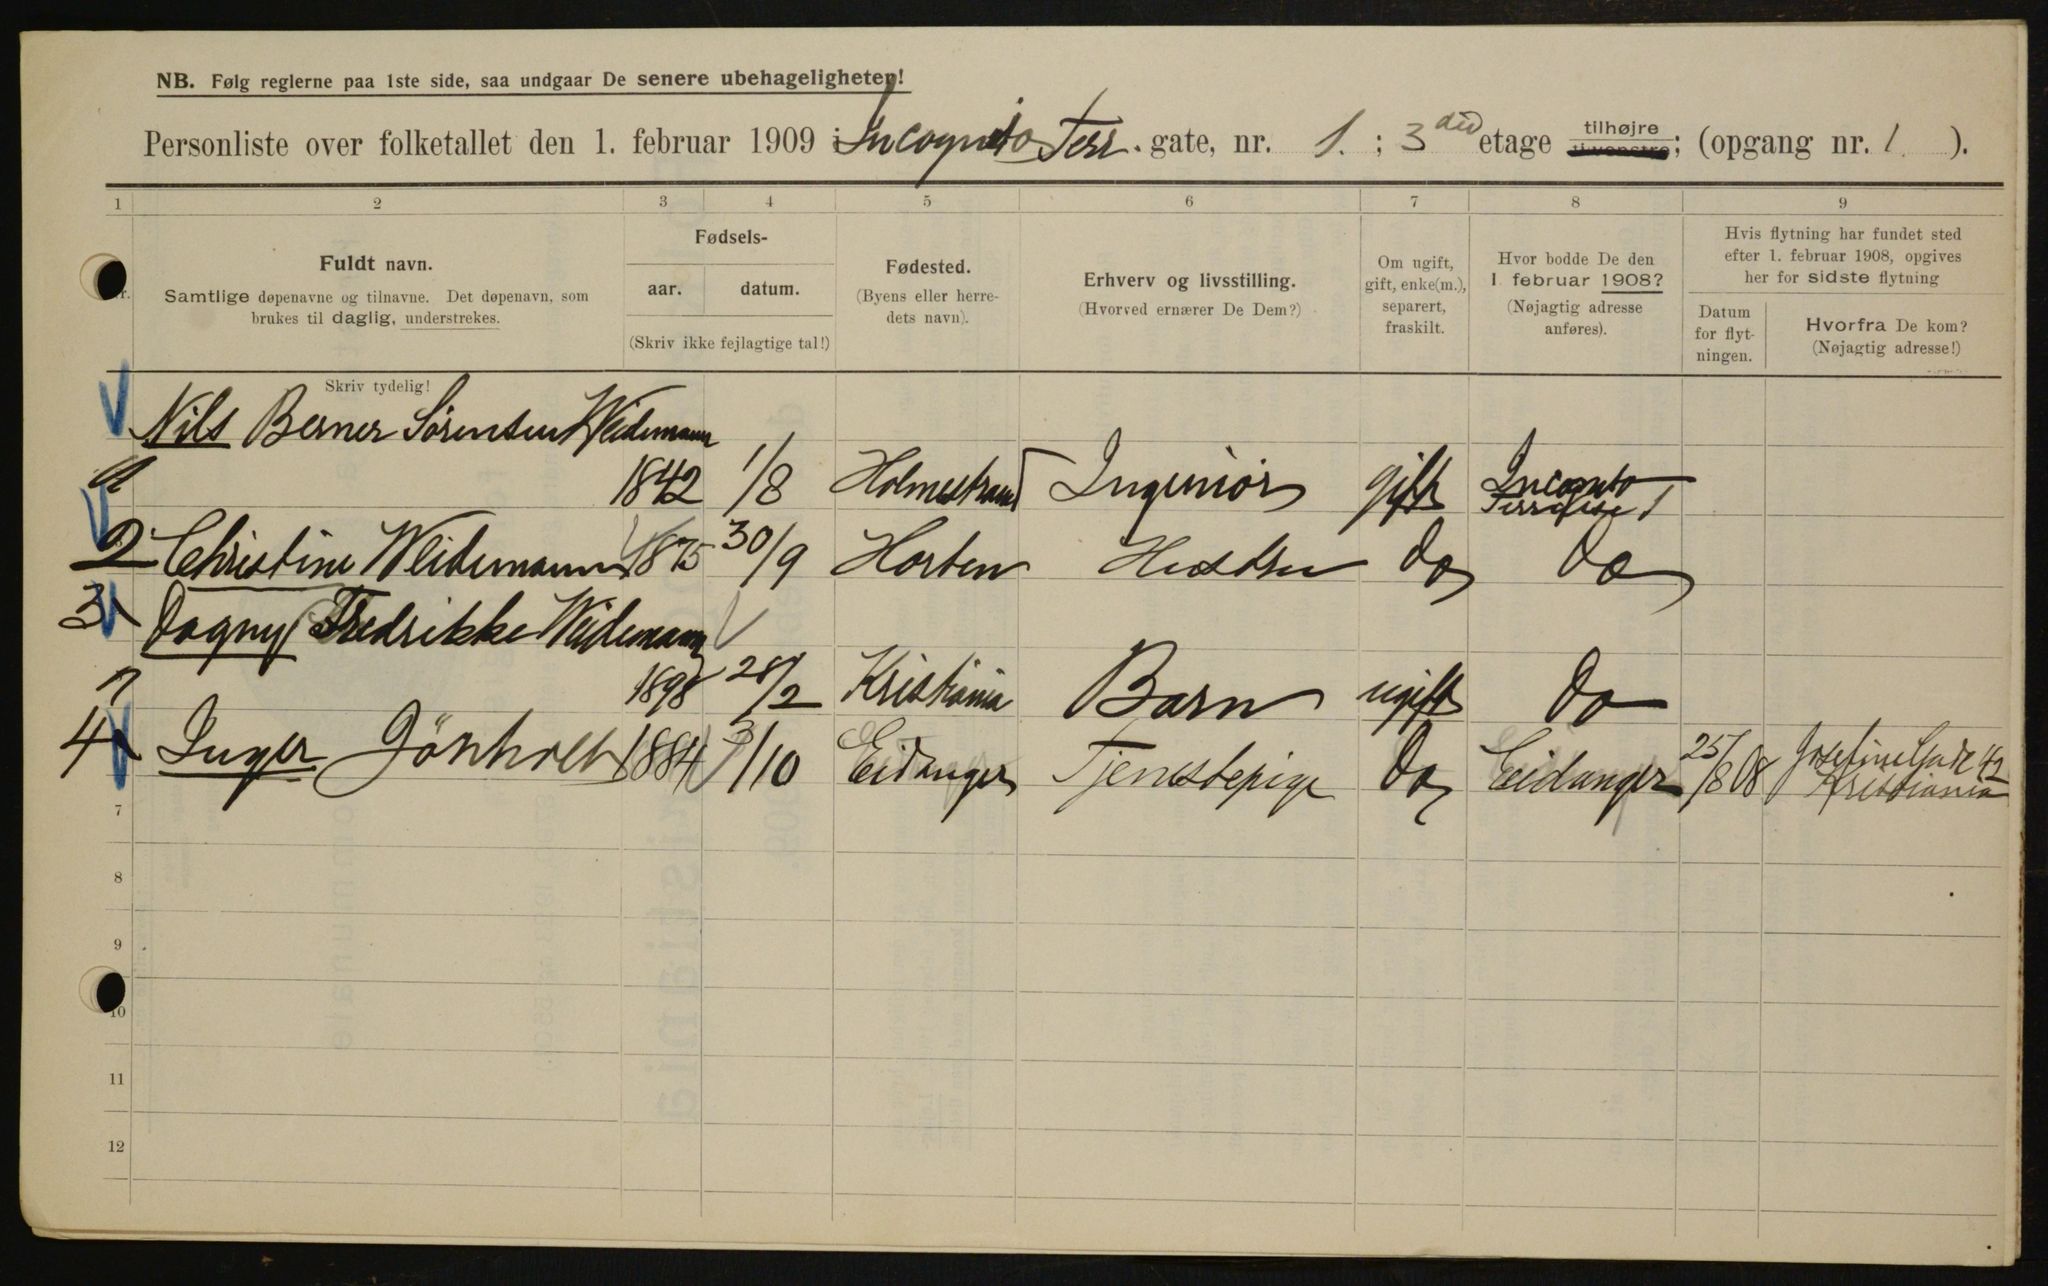 NB. Følg reglerne paa 1ste side, saa undgaar De senere ubehageligheter!
Personliste over folketallet den 1. februar 1909 i Incognito Terr. gate, nr. 1. ; 3 etage tilhøjre tilvenstre; (opgang nr. 1. ).
1 2 3 4 5 6 7 8 9
Fuldt navn.
Samtlige døpenavne og tilnavne. Det døpenavn, som
brukes til daglig, understrekes.
Fødsels-
aar. datum.
(Skriv ikke fejlagtige tal!)
Fødested.
(Byens eller herre-
dets navn).
Erhverv og livsstilling.
(Hvorved ernærer De Dem?)
Om ugift,
gift, enke(m.),
separert,
fraskilt.
Hvor bodde De den
1 februar 1908?
(Nøjagtig adresse
anføres).
Hvis flytning har fundet sted
efter 1. februar 1908, opgives
her for sidste flytning
Datum
for flyt-
ningen.
Hvorfra De kom?
(Nøjagtig adresse!)
Skriv tydelig!
Nils Berner Sørensen Weidemann
1842 1/8 Holmestrand Ingeniør gift Incognito
Terrasse 1
2 Christine Weidemann 1875 30/9 Horten Hustru Do Do
3 Dagny Fredrikke Weidemann
1898 28/2 Kristiania Barn ugift Do
4 Inger Gönholt 1884 3/10 Eidanger Tjenestepige Do Eidanger 25/8 08 Josefine Gade 42
Kristiania
7
8
9
10
11
12